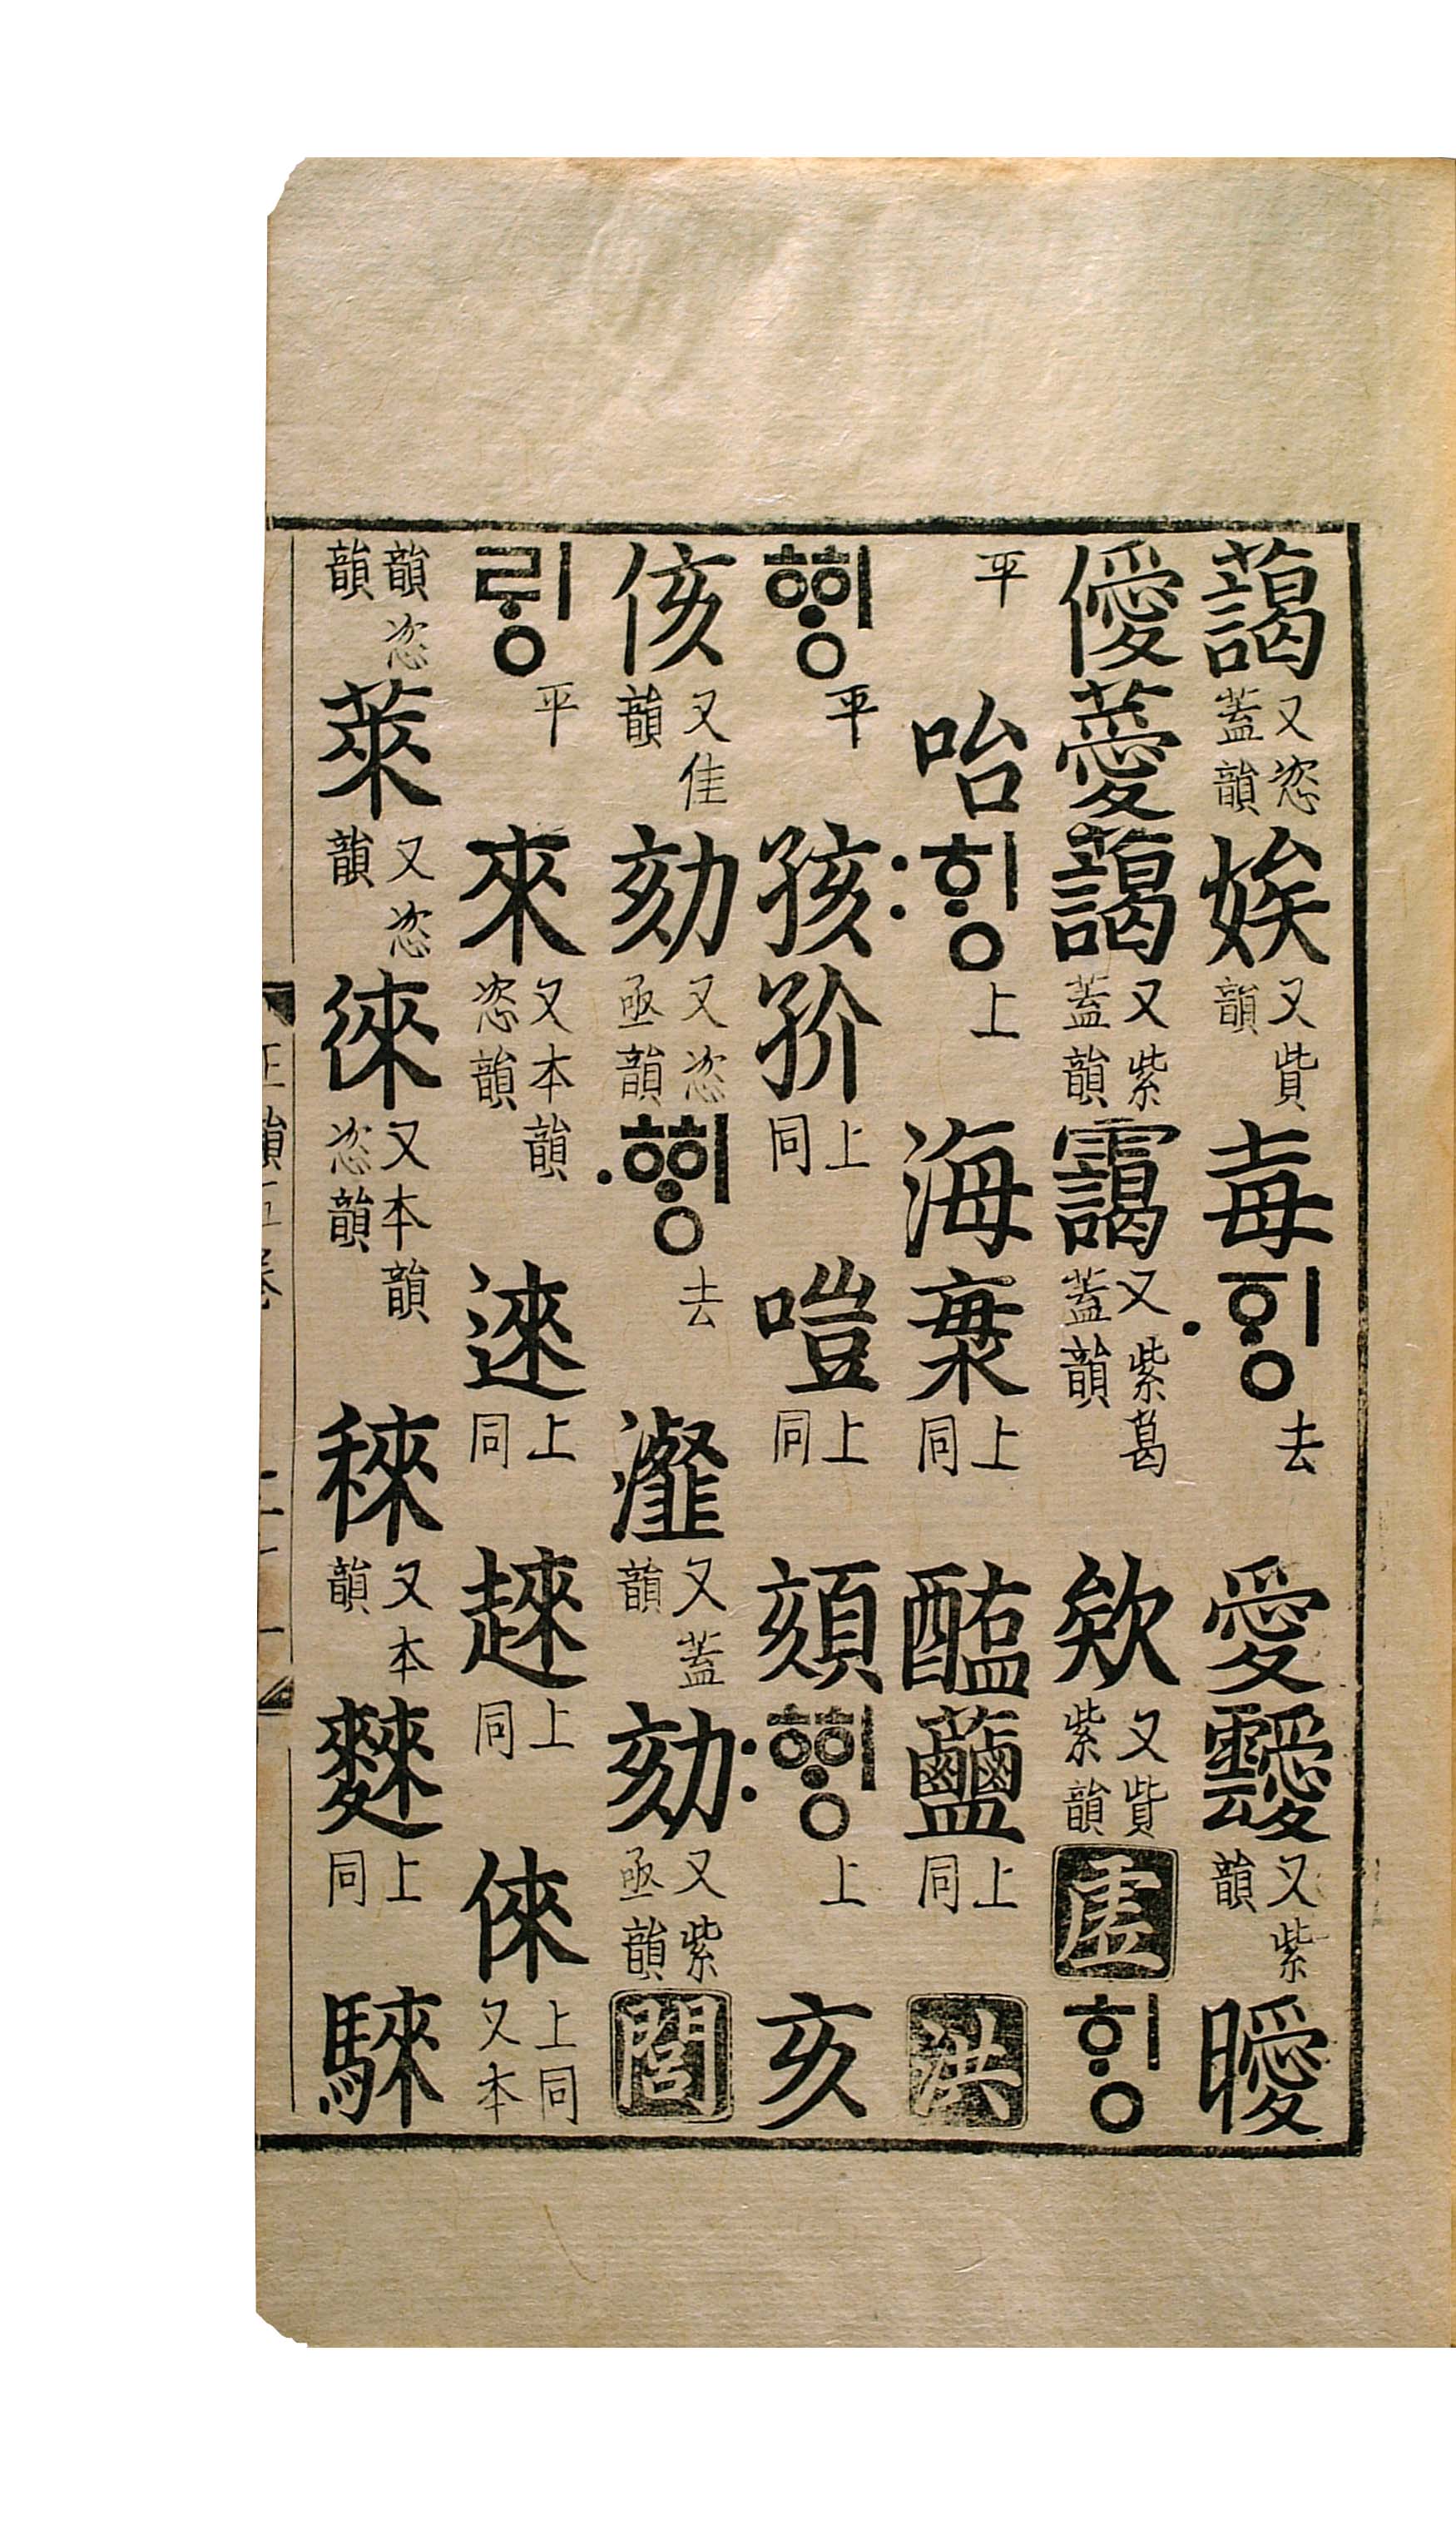 藹又恣蓋韻娭又貲韻毐〮ᅙᆡᆼ去愛靉又紫韻曖
僾薆譪又紫蓋韻靄又紫葛蓋韻欸又貲紫韻虛ᄒᆡᆼ
平咍〯ᄒᆡᆼ上海上同醢上同洪
ᅘᆡᆼ平孩上同上同頦〯ᅘᆡᆼ上亥
侅又佳韻劾又恣亟韻〮ᅘᆡᆼ去瀣又蓋韻劾又紫亟韻閭
ᄅᆡᆼ平來又本韻恣韻逨上同上同倈上同又本
韻恣韻萊又恣韻徠又本韻恣韻䅘又本韻麳上同騋
正韻五卷